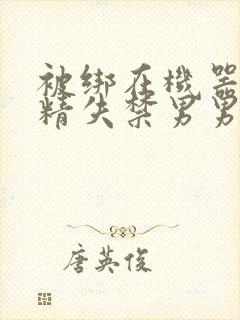 被绑在機器
精失禁男男
唐英俊